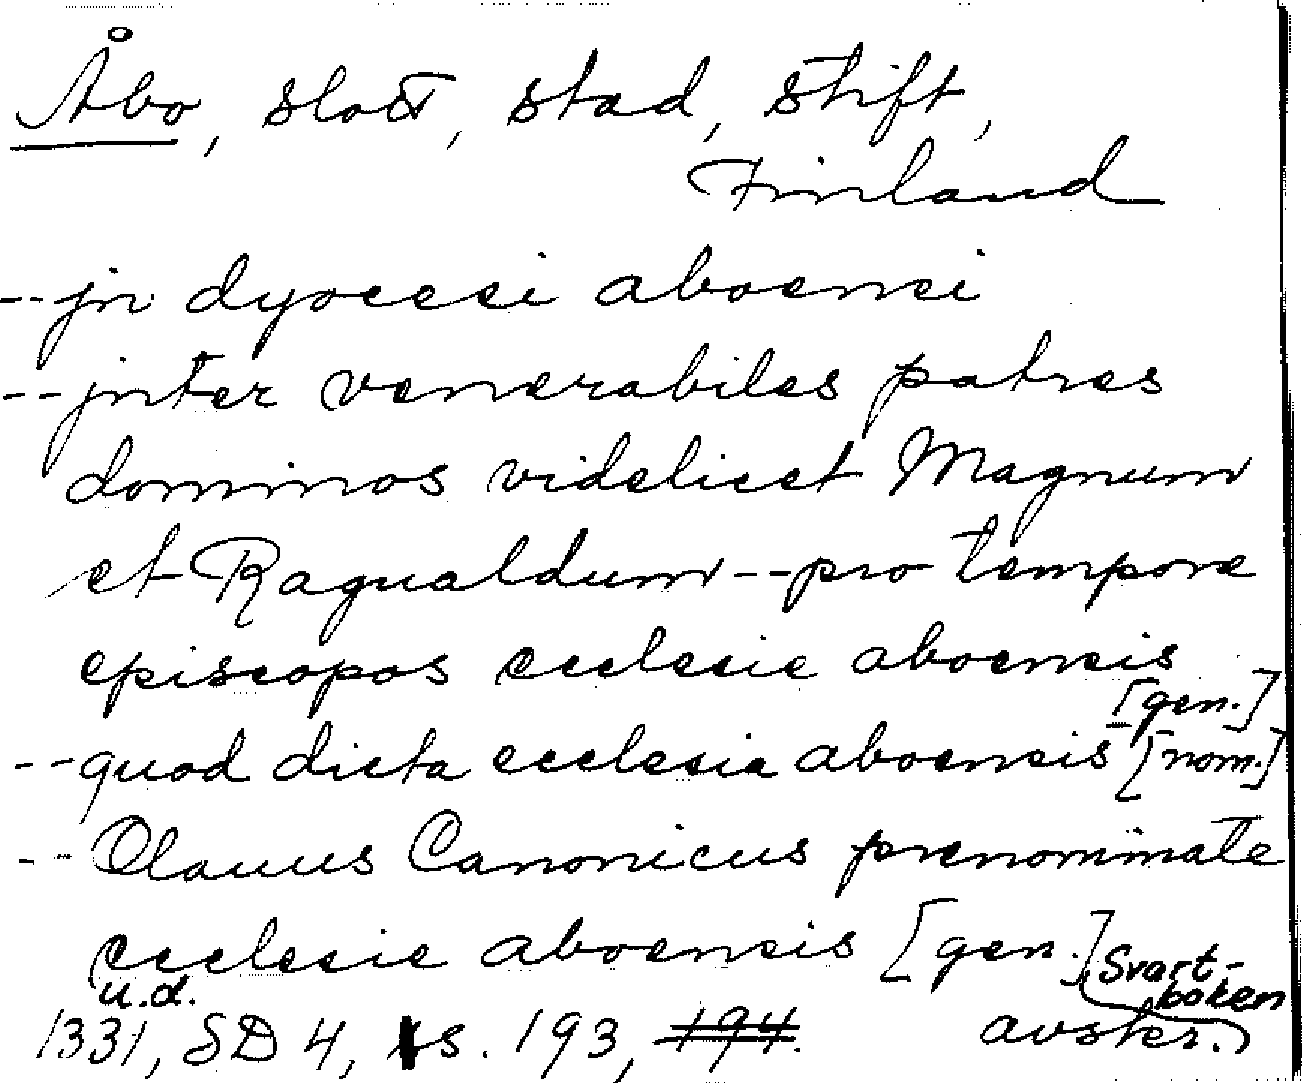 Åbo, slott, stad, stift,
Finland
-- jn dyocesi aboensi
-- jnter venerabiles patres
dominos videlicet Magnum
et Ragualdum -- pro tempore
episcopos ecclesie aboensis
[gen.]
-- quod dicta ecclesia aboensis [nom.]
-- Olauus Canonicus prenominate
ecclesie aboensis [gen.] Svart-
u.d. boken
1331, SD 4, s. 193, 194. avskr.)